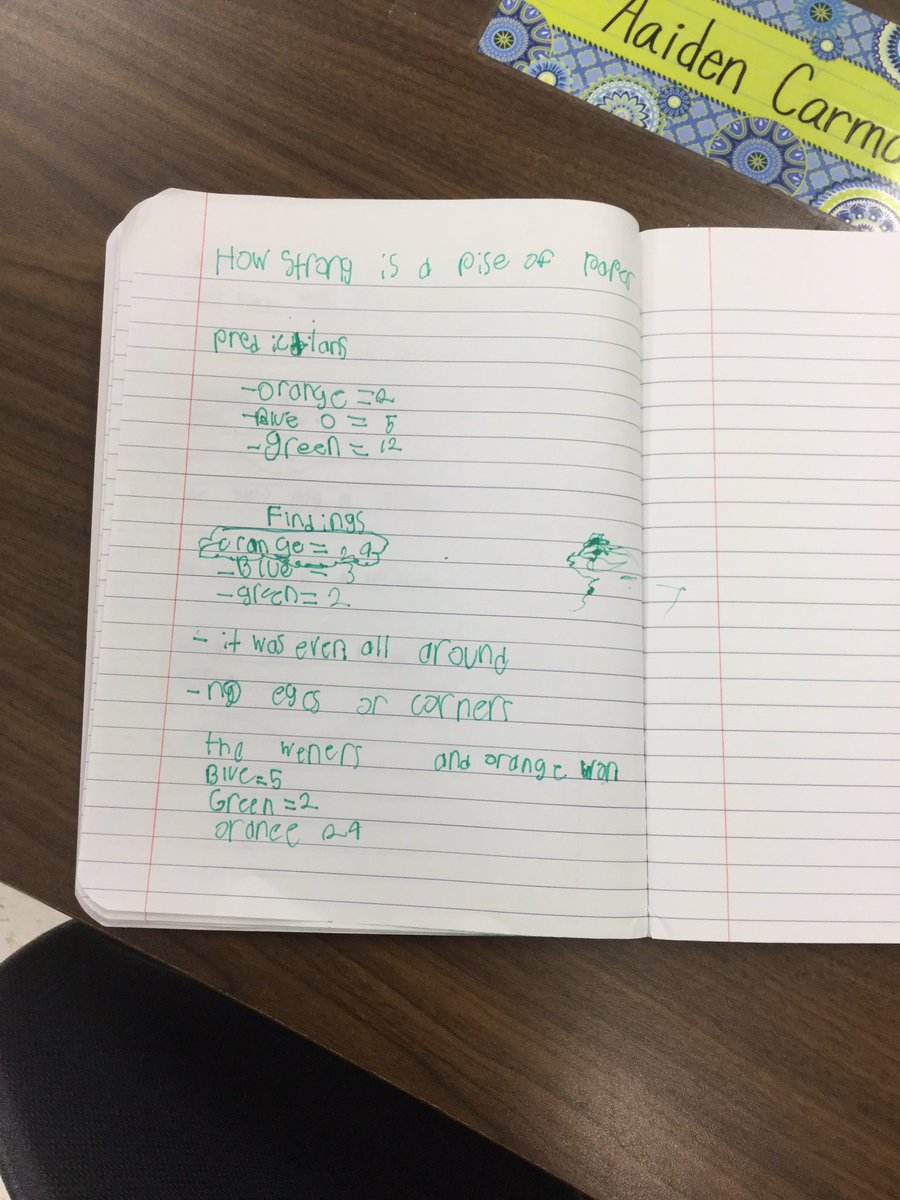 Aaiden Carmo
How strong is a pise of paper
predictians
-orange = 2
-Blue 0 = 5
-green = 12
Findings
orange = 29
-Blue = 3
-green = 2
- it was even all around
- no eges or corners
tha weners and orange won
Blue = 5
Green = 2
orange 29